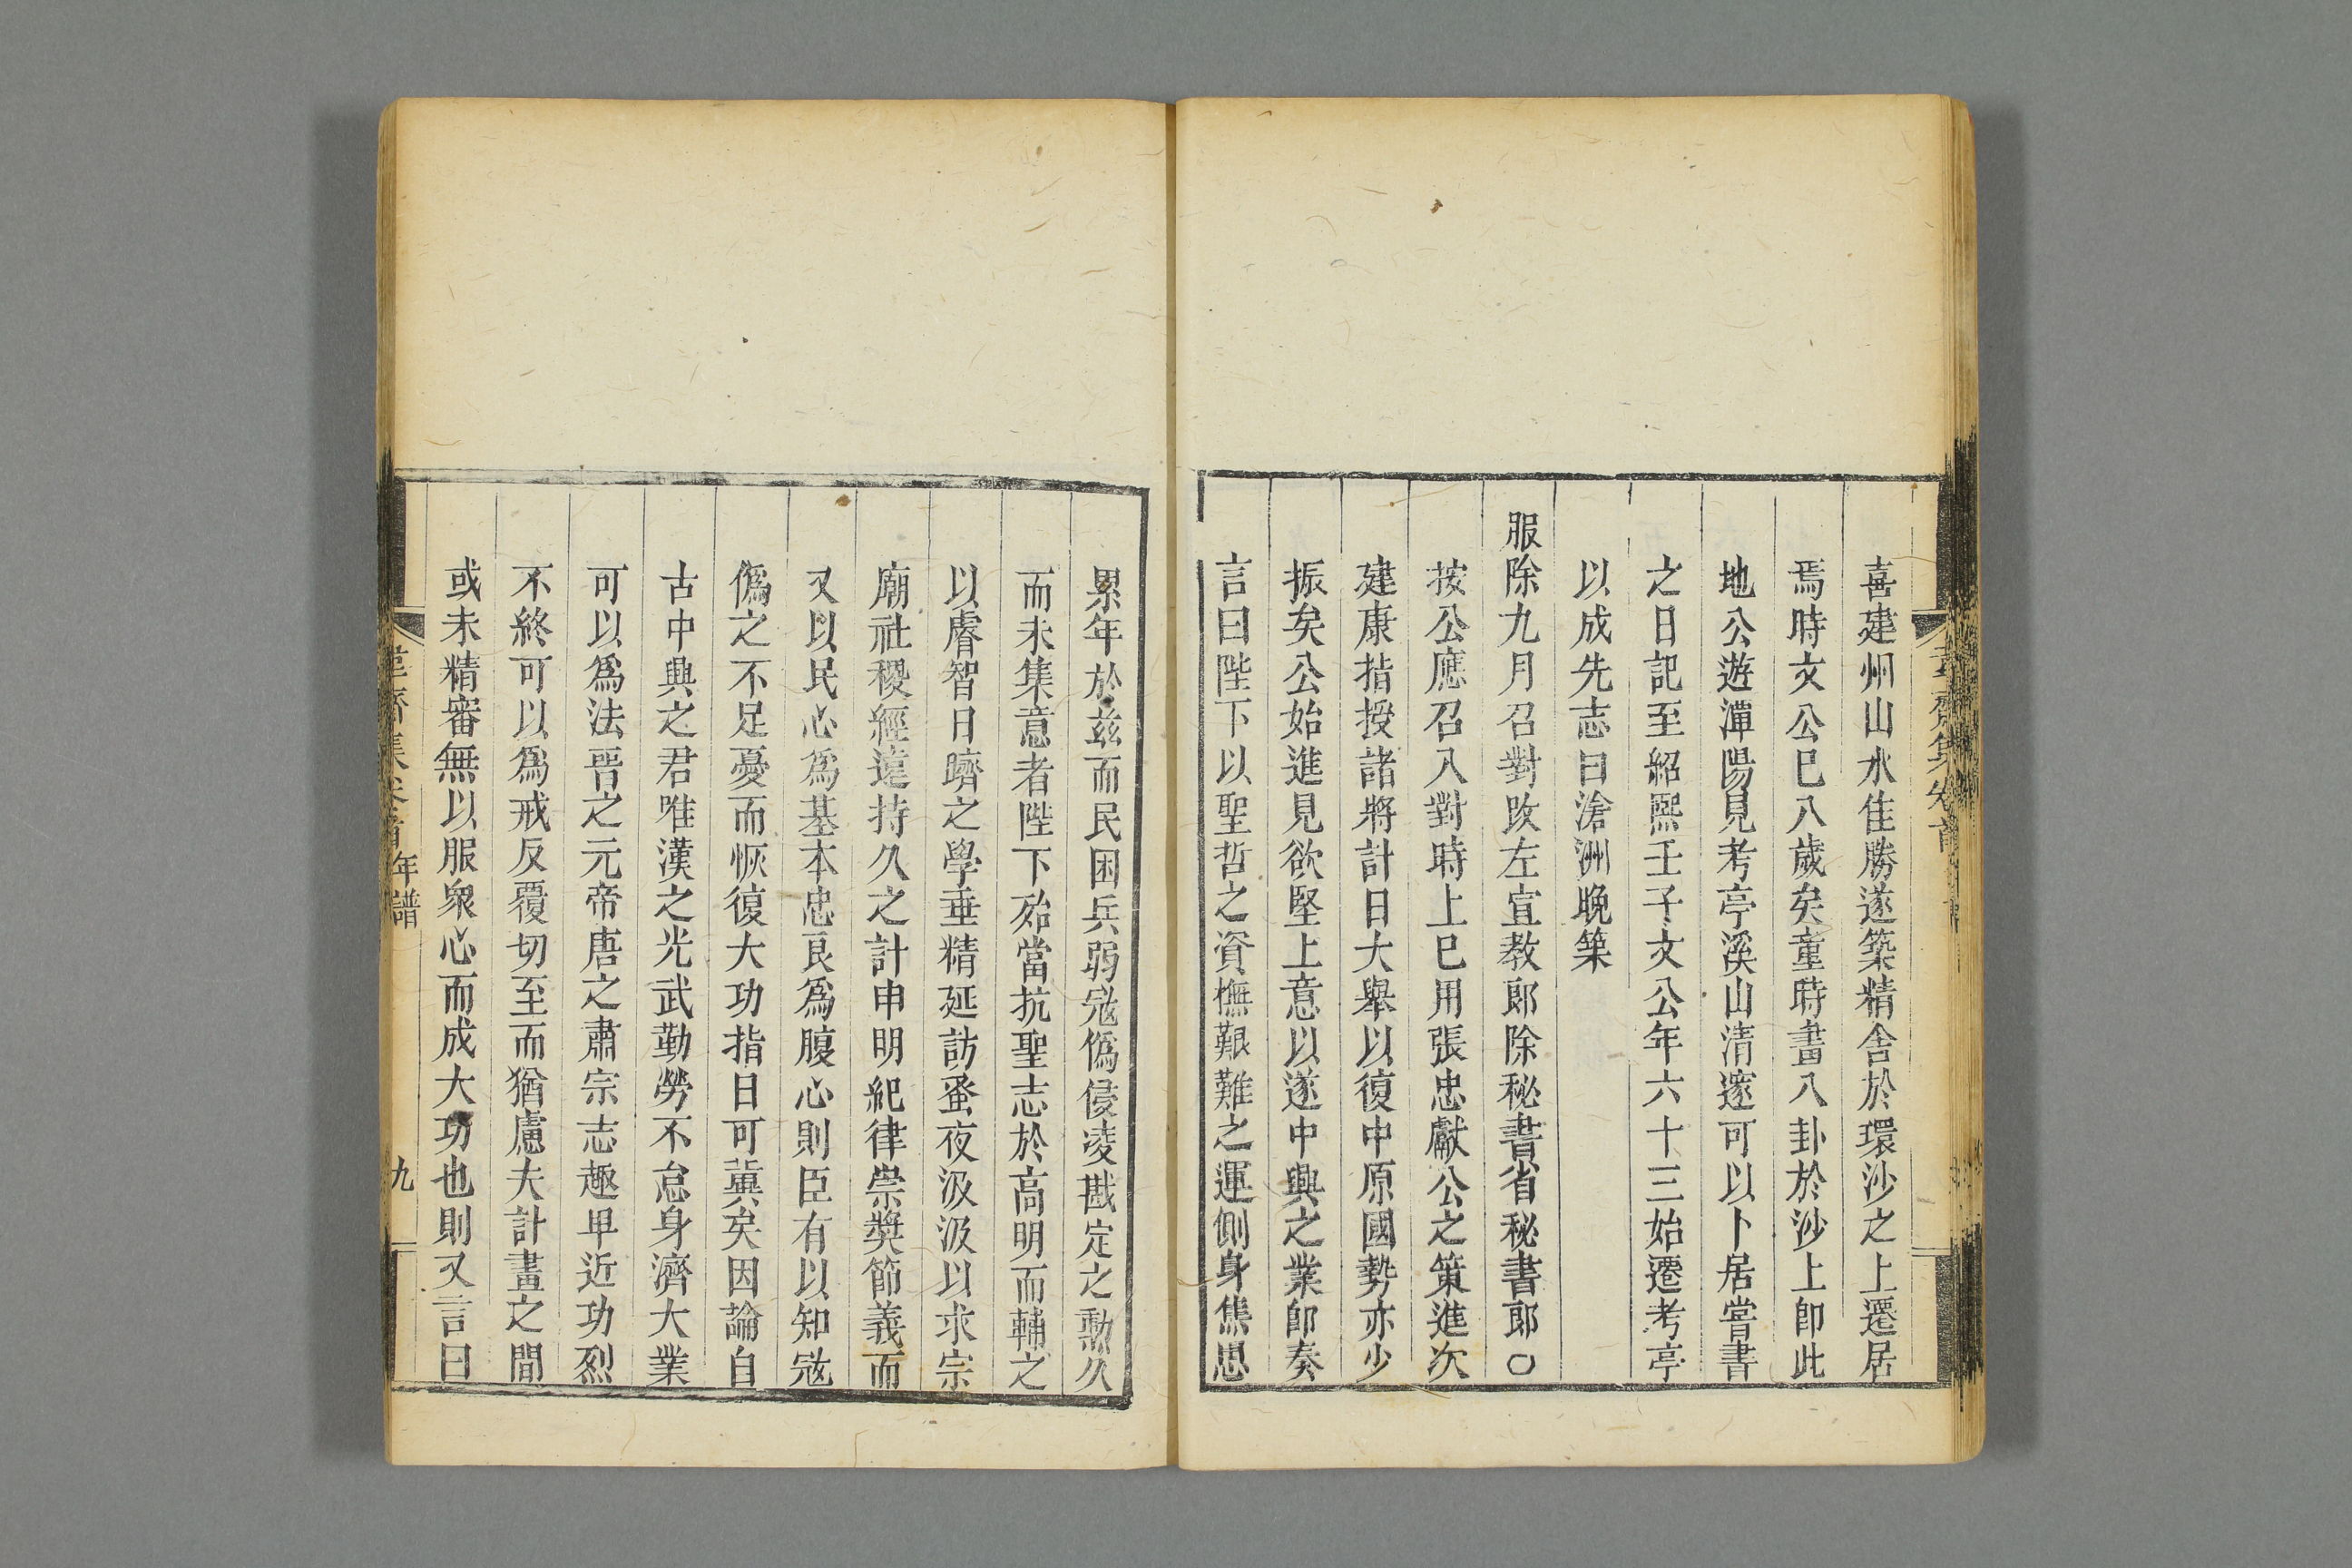 喜建州山水佳勝遂築精舍於環沙之上遷居
焉時文公巳八歲矣童時畫八卦於沙上卽此
地公遊潭陽見考亭溪山清邃可以卜居嘗書
之日記至紹熙壬子文公年六十三始遷考亭
以成先志曰滄洲晚築
服除九月召對改左宣教郎除秘書省秘書郎○
按公應召入對時上巳用張忠獻公之策進次
建康指授諸將計日大舉以復中原國勢亦少
振矣公始進見欲堅上意以遂中興之業卽奏
言曰陛下以聖哲之資憮艱難之運側身焦思
累年於兹而民困兵弱冦僞侵凌戡定之勲久
而未集意者陛下殆當抗聖志於高明而輔之
以睿智日躋之學垂精延訪蚤夜汲汲以求宗
廟社稷經遠持久之計申明紀律崇奬節義而
又以民心爲基本忠良爲腹心則臣有以知冦
僞之不足憂而恢復大功指日可冀矣因論自
古中興之君唯漢之光武勤勞不怠身濟大業
可以爲法晉之元帝唐之肅宗志趣卑近功烈
不終可以爲戒反覆切至而猶慮夫計畫之間
或未精審無以服衆心而成大功也則又言曰
韋齋集卷首年譜
九